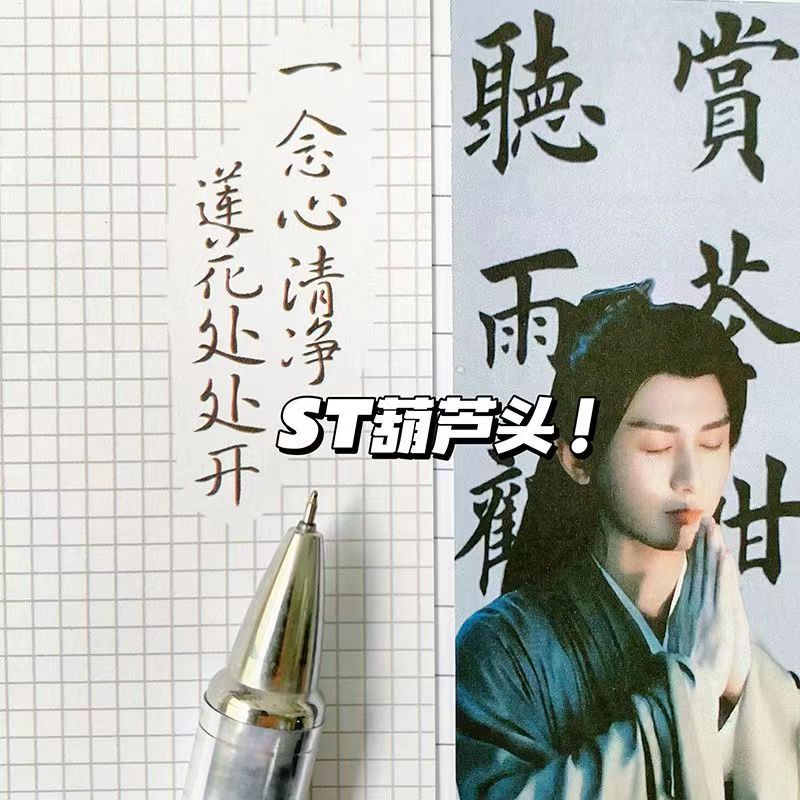 一念心清净
蓮花处处开
ST葫芦头！
賞茶
聽雨